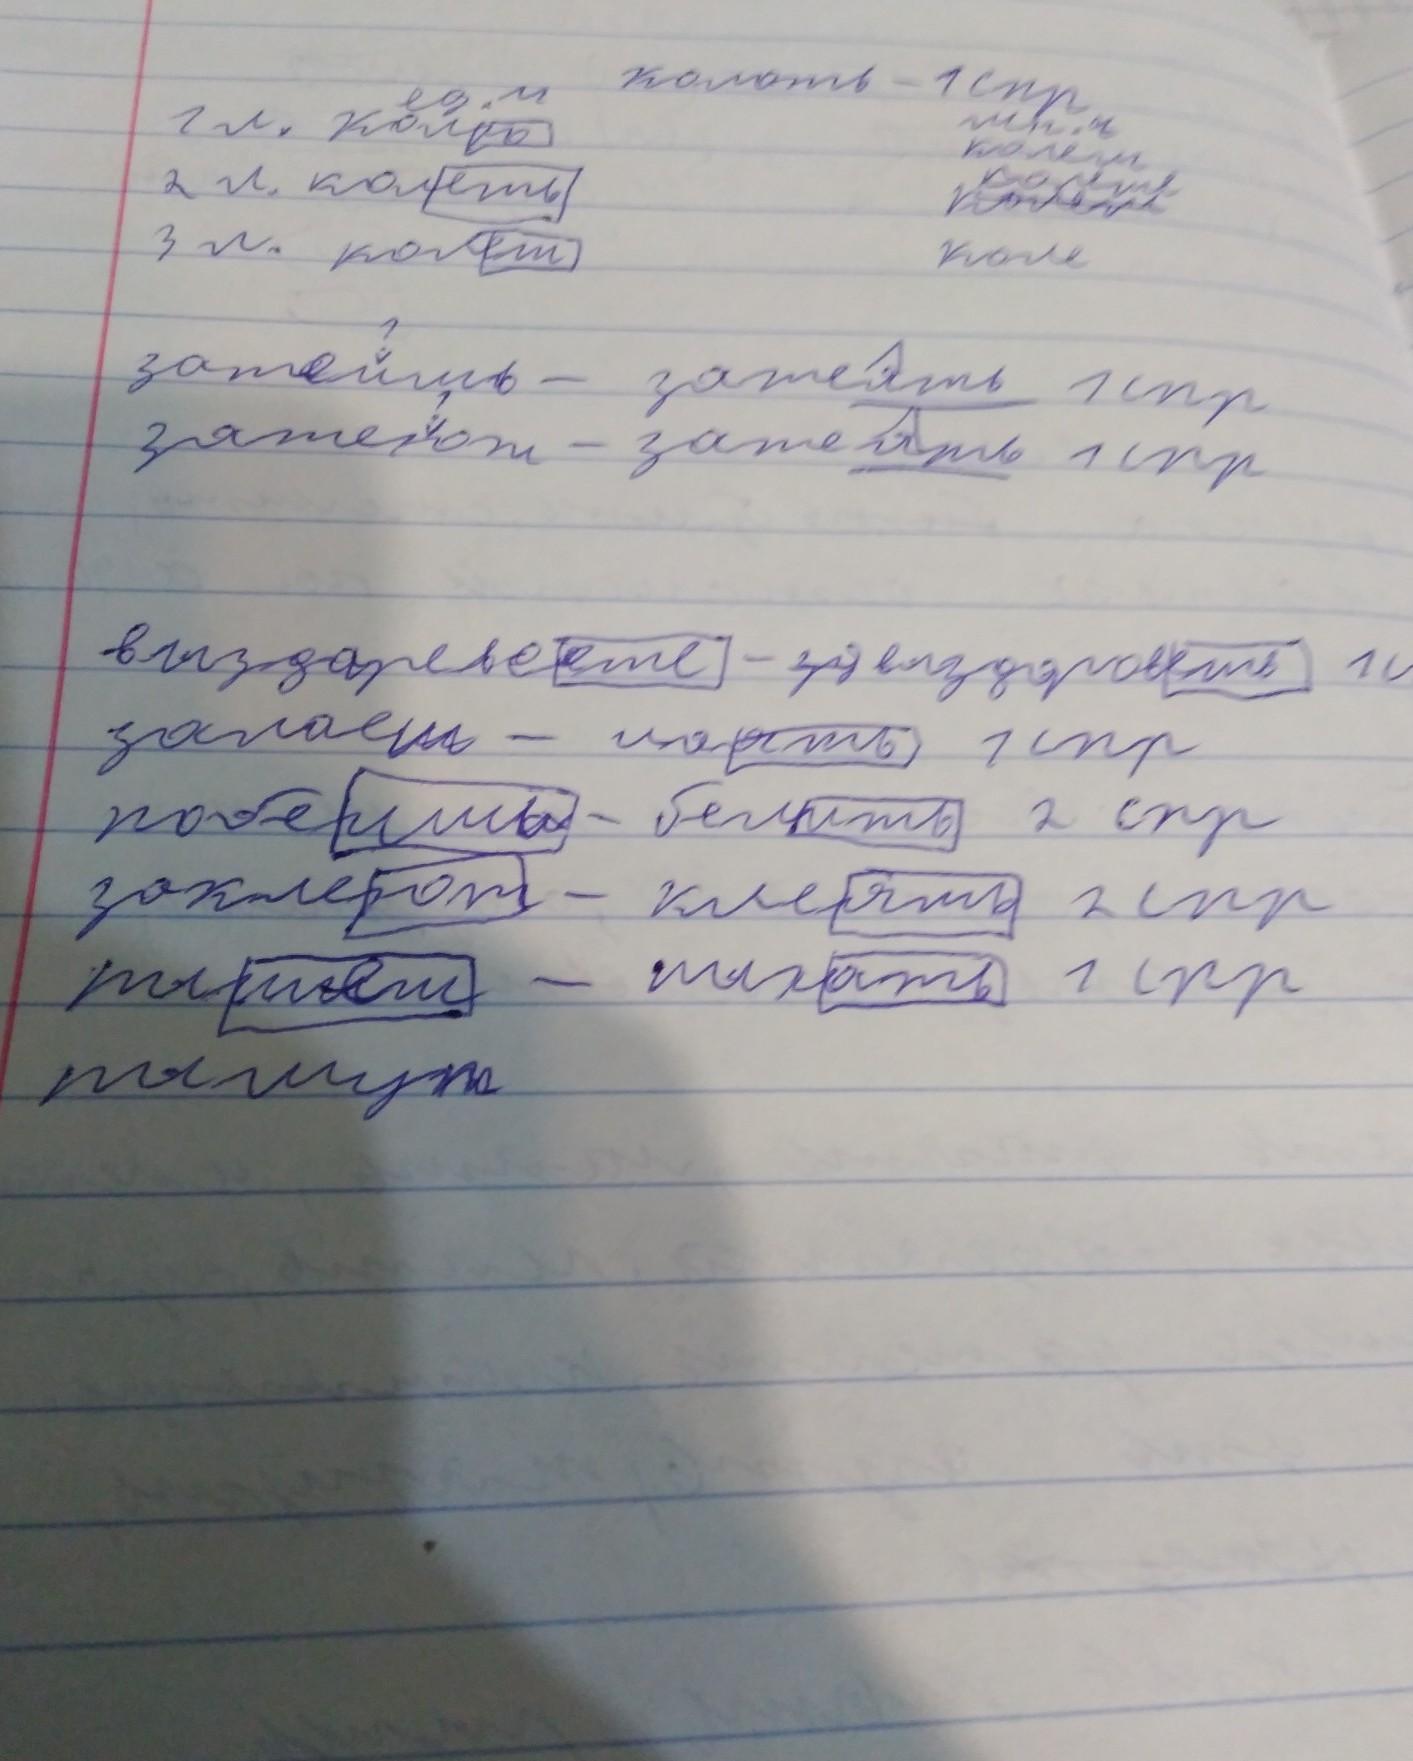 колоть - 1 спр
ед. ч мн. ч
1 л. колю колем
2 л. колешь колете
3 л. колет коле
затейшь - затеять 1 спр
затейют - затеять 1 спр
выздаревеете - выздороветь 1 с
залаеш - лаять 1 спр
побелишь - белить 2 спр
заклеют - клеять 2 спр
пашет - пахать 1 спр
пашут